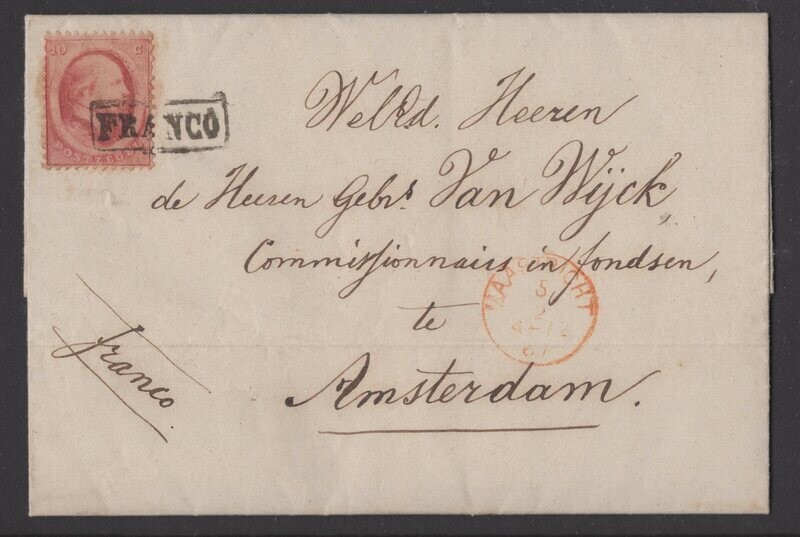 10 C
POSTZEGEL
FRANCO
Weled. Heeren
de Heeren Gebrs. Van Wijck
Commissionnairs in fondsen,
te
Amsterdam.
franco.
MAASTRICHT
5
67